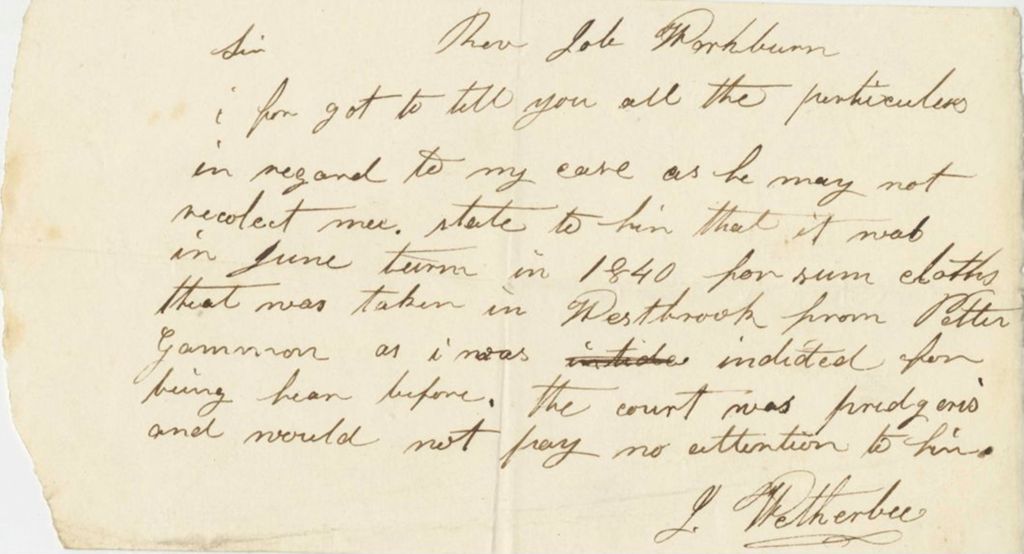 Sir Rev Job Workburn
i for got to till you all the perticulers
in regard to my case as he may not
recolect mee. state to him that it was
in June turm in 1840 for sum cloths
that was taken in Westbrook from Petter
Gammon as i was intide indicted for
being hear before. the court was predgeris
and would not pay no attention to him.
J. Wetherbee